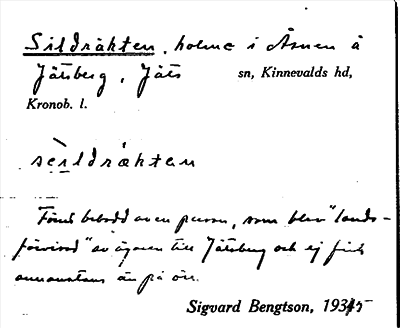 Sildräkten, holme i Åsnen å
Jätsberg, Jäts sn, Kinnevalds hd,
Kronob. l.
sìldräktən
Förut bebodd av en person, som blev "lands-
förvisad" av ägaren till Jätsberg och ej fick
annanstans än på ön.
Sigvard Bengtson, 1935